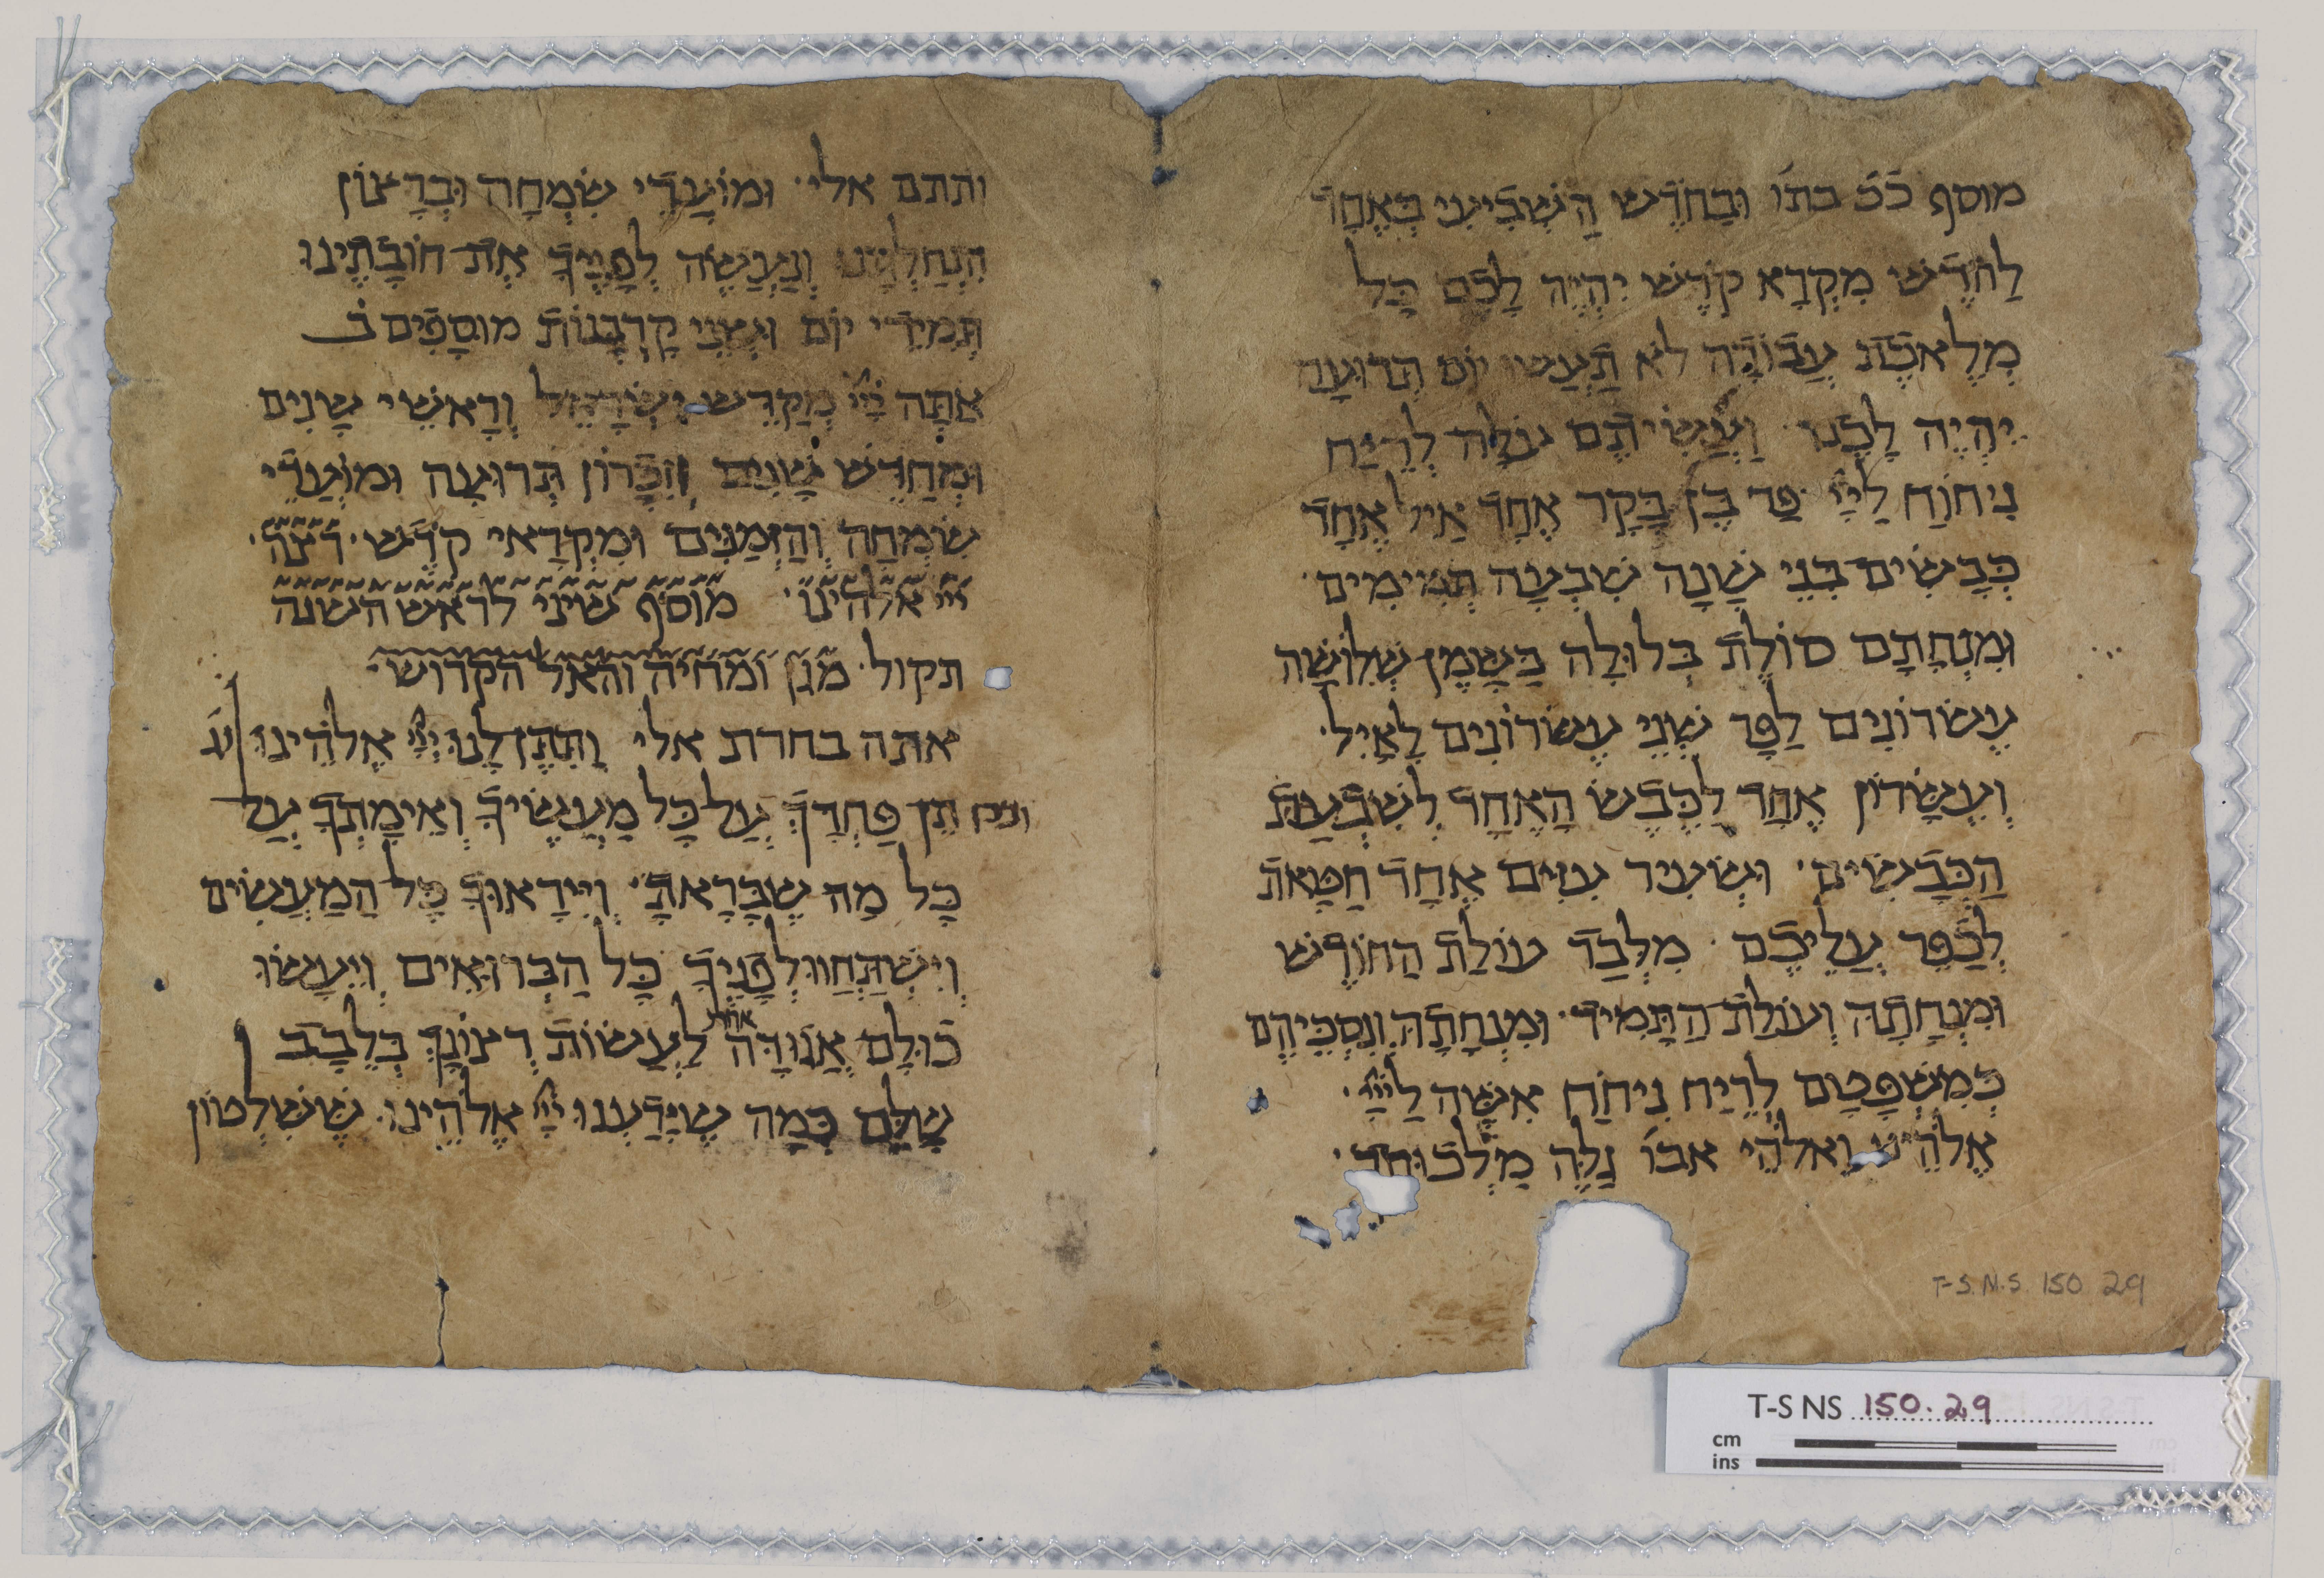 מוסף ככ בתו וּבַחֹדֶשׁ הַשְּׁבִיעִי בְּאֶחָד
לַחֹדֶשׁ מִקְרָא קֹדֶשׁ יִהְיֶה לָכֶם כָּל
מְלֶאכֶת עֲבוֹדָה לֹא תַעֲשׂוּ יוֹם תְּרוּעָה
יִהְיֶה לָכֶם וַעֲשִׂיתֶם עֹלָה לְרֵיַח
נִיחוֹחַ לַייָ פַּר בֶּן בָּקָר אֶחָד אַיִל אֶחָד
כְּבָשִׂים בְּנֵי שָׁנָה שִׁבְעָה תְּמִימִים
וּמִנְחָתָם סוֹלֶת בְּלוּלָה בַּשָּׁמֶן שְׁלוֹשָׁה
עֶשְׂרוֹנִים לַפָּר שְׁנֵי עֶשְׂרוֹנִים לָאָיִל
וְעֶשָׂרוֹן אֶחָד לַכֶּבֶשׂ הָאֶחָד לְשִׁבְעַת
הַכְּבָשִׂים וּשְׂעִיר עִזִּים אֶחָד חַטָּאת
לְכַפֵּר עֲלֵיכֶם מִלְּבַד עוֹלַת הַחוֹדֶשׁ
וּמִנְחָתָהּ וְעוֹלַת הַתָּמִיד וּמִנְחָתָהּ וְנִסְכֵּיהֶם
כְּמִשְׁפָּטָם לְרֵיַח נִיחֹחַ אִשֶּׁה לַייָ
אֱלֹהֵינוּ וֵאלֹהֵי אבו גַלֵּה מַלְכוּתָךְ
ותתם אלי וּמוֹעֲדֵי שִׂמְחָה וּבְרָצוֹן
הִנְחַלְתָּנוּ וְנַעֲשֶׂה לְפָנֶיךָ אֶת חוֹבָתֵינוּ
תְּמִידֵי יוֹם וּשְׁנֵי קָרְבָּנוֹת מוּסָפִים ב
אַתָּה ייָ מְקַדֵּשׁ יִשְׂרָאֵל וְרָאשֵׁי שָׁנִים
וּמְחַדֵּשׁ שָׁנִים וְזִכָּרוֹן תְּרוּעָה וּמוֹעֲדֵי
שִׂמְחָה וְהַזְּמַנִּים וּמִקְרָאֵי קֹדֶשׁ רצה
ייי אלהינו מוסף שיני לראש השנה
תקול מגן ומחיה והאל הקדוש
אתה בחרת אלי וַתִּתֶּן לָנוּ ייָ אֱלֹהֵינוּ
ובכ תֵּן פַּחְדָּךְ עַל כָּל מַעֲשֶׂיךָ וְאֵימָתְךָ עַל
כָּל מַה שֶּׁבָּרָאתָ וְיִירָאוּךָ כָּל הַמַּעֲשִׂים
וְיִשְׁתַּחֲווּ לְפָנֶיךָ כָּל הַבְּרוּאִים וְיֵעָשׂוּ
כוּלָּם אֲגוּדָּה אחת לַעֲשׂוֹת רְצוֹנָךְ בְּלֵבָב
שָׁלֵם כְּמָה שֶׁיָּדַעְנוּ ייָ אֱלֹהֵינוּ שֶׁשִּׁלְטוֹן
T-S. N.S. 150 29
T-S NS 150.29
cm
ins